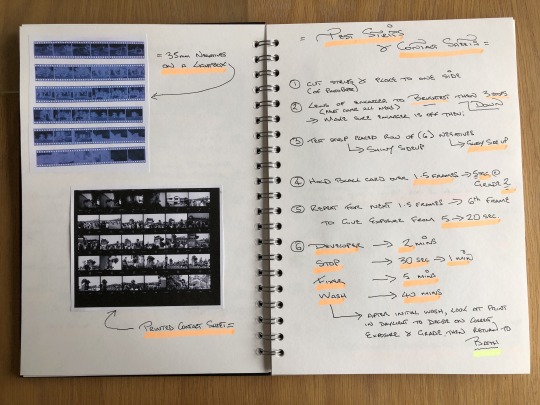 = 35mm Negatives
on a Lightbox
Printed Contact Sheet =
= Test Strips
& Contact Sheets =
① Cut strips & place to one side
(of paper)
② Lens of enlarger to Brightest then 3 stops
Down
→ Make sure enlarger is off then:
③ Test strip placed row of (6) negatives
↳ Shiny side up
↳ Shiny side up
④ Hold Black card over 1.5 frames → 5 sec @
Grade 2
⑤ Repeat for next 1.5 frames → 6th frame
to give exposure from 5 → 20 sec.
⑥ Developer → 2 mins
Stop → 30 sec → 1 min
Fixer → 5 mins
Wash → 40 mins
↳ After initial wash, look at print
in daylight to decide on correct
exposure & grade, then return to
Bath